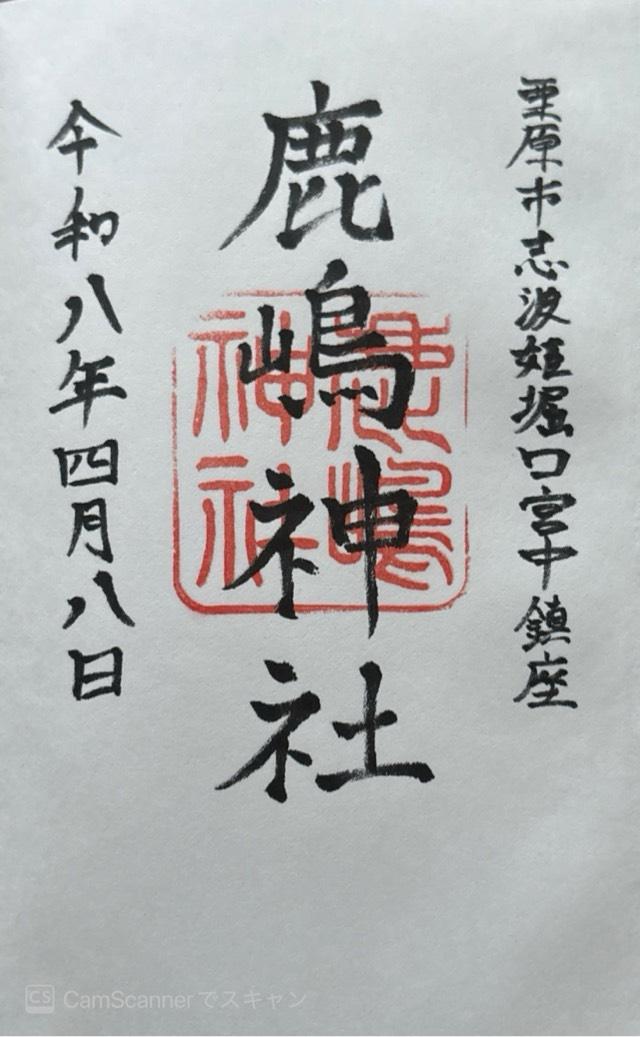 栗原市志波姫堀口宮中鎮座
鹿嶋神社
鹿嶋神社
令和八年四月八日
CS CamScannerでスキャン